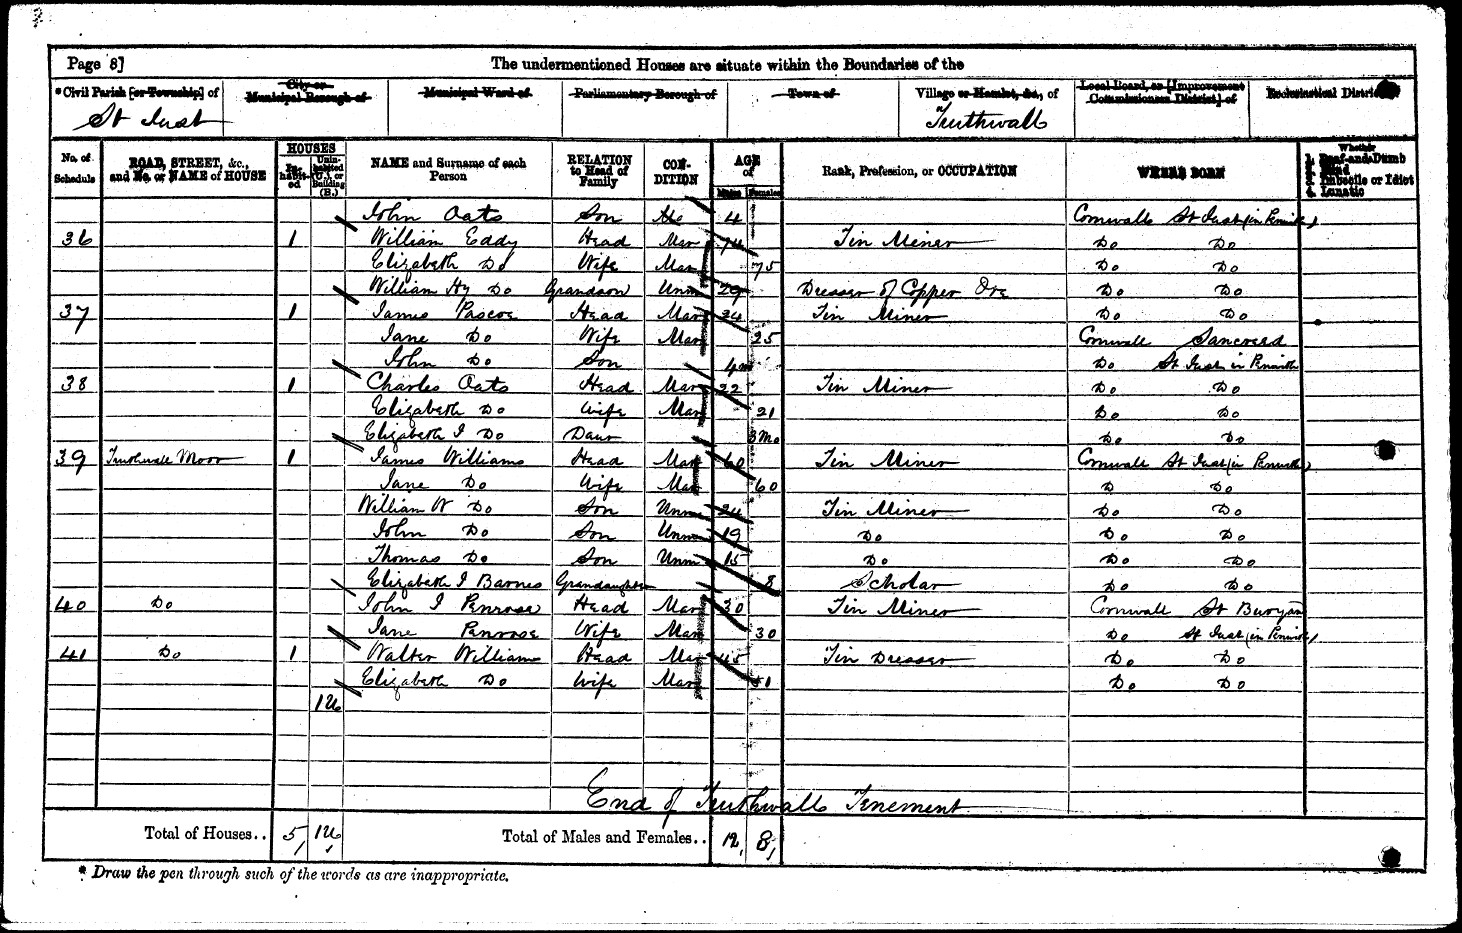 Page 8]
The undermentioned Houses are situate within the Boundaries of the
*Civil Parish [or Township] of
City or Municipal Borough of
Municipal Ward of
Parliamentary Borough of
Town of
Village or Hamlet, &c., of
Local Board, or [Improvement Commissioners District] of
Ecclesiastical District
St Just
Truthwall
No. of Schedule
ROAD, STREET, &c., and No. or NAME of HOUSE
HOUSES
Inhabited
Uninhabited (U.), or Building (B.)
NAME and Surname of each Person
RELATION to Head of Family
CONDITION
AGE of
Males
Females
Rank, Profession, or OCCUPATION
WHERE BORN
Whether
1. Deaf-and-Dumb
2. Blind
3. Imbecile or Idiot
4. Lunatic
John Oats Son 4 Cornwall St Just (in Penwith)
36 1 William Eddy Head Mar 74 Tin Miner Do Do
Elizabeth Do Wife Mar 75 Do Do
William Hy Do Grandson Unm 29 Dresser of Copper Ore Do Do
37 1 James Pascoe Head Mar 24 Tin Miner Do Do
Jane Do Wife Mar 25 Cornwall Sancreed
John Do Son 4m Do St Just in Penwith
38 1 Charles Oats Head Mar 22 Tin Miner Do Do
Elizabeth Do Wife Mar 21 Do Do
Elizabeth J Do Daur 3Mo Do Do
39 Truthwall Moor 1 James Williams Head Mar 60 Tin Miner Cornwall St Just (in Penwith)
Jane Do Wife Mar 60 D Do
William W Do Son Unm 24 Tin Miner Do Do
John Do Son Unm 19 Do Do Do
Thomas Do Son Unm 15 Do Do Do
Elizabeth J Barnes Grandaughter 8 Scholar Do Do
40 Do John J Penrose Head Mar 30 Tin Miner Cornwall St Buryan
Jane Penrose Wife Mar 30 Do St Just (in Penwith)
41 Do 1 Walter Williams Head Mar 45 Tin Dresser Do Do
Elizabeth Do Wife Mar 51 Do Do
1U
End of Truthwall Tenement
Total of Houses.. 5 1U Total of Males and Females.. 12 8
* Draw the pen through such of the words as are inappropriate.